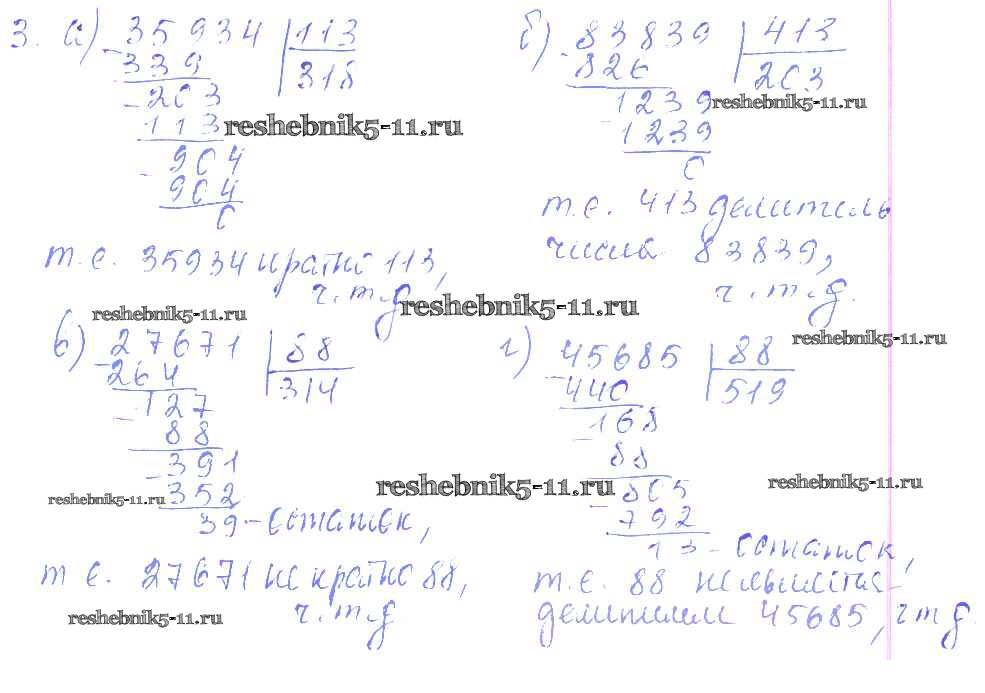 3. а) 35934 | 113
- 339 | 318
- 203
113
- 904
904
0
т.е. 35934 кратно 113,
ч.т.д
б) 83839 | 413
- 826 | 203
1239
- 1239
0
т.е. 413 делитель
числа 83839,
ч.т.д.
в) 27671 | 88
- 264 | 314
- 127
88
- 391
352
39 - остаток,
т е. 27671 не кратно 88,
ч.т.д
г) 45685 | 88
- 440 | 519
- 168
88
- 805
792
13 - остаток,
т.е. 88 не является
делителем 45685, ч т д.
reshebnik5-11.ru
reshebnik5-11.ru
reshebnik5-11.ru
reshebnik5-11.ru
reshebnik5-11.ru
reshebnik5-11.ru
reshebnik5-11.ru
reshebnik5-11.ru
reshebnik5-11.ru
reshebnik5-11.ru